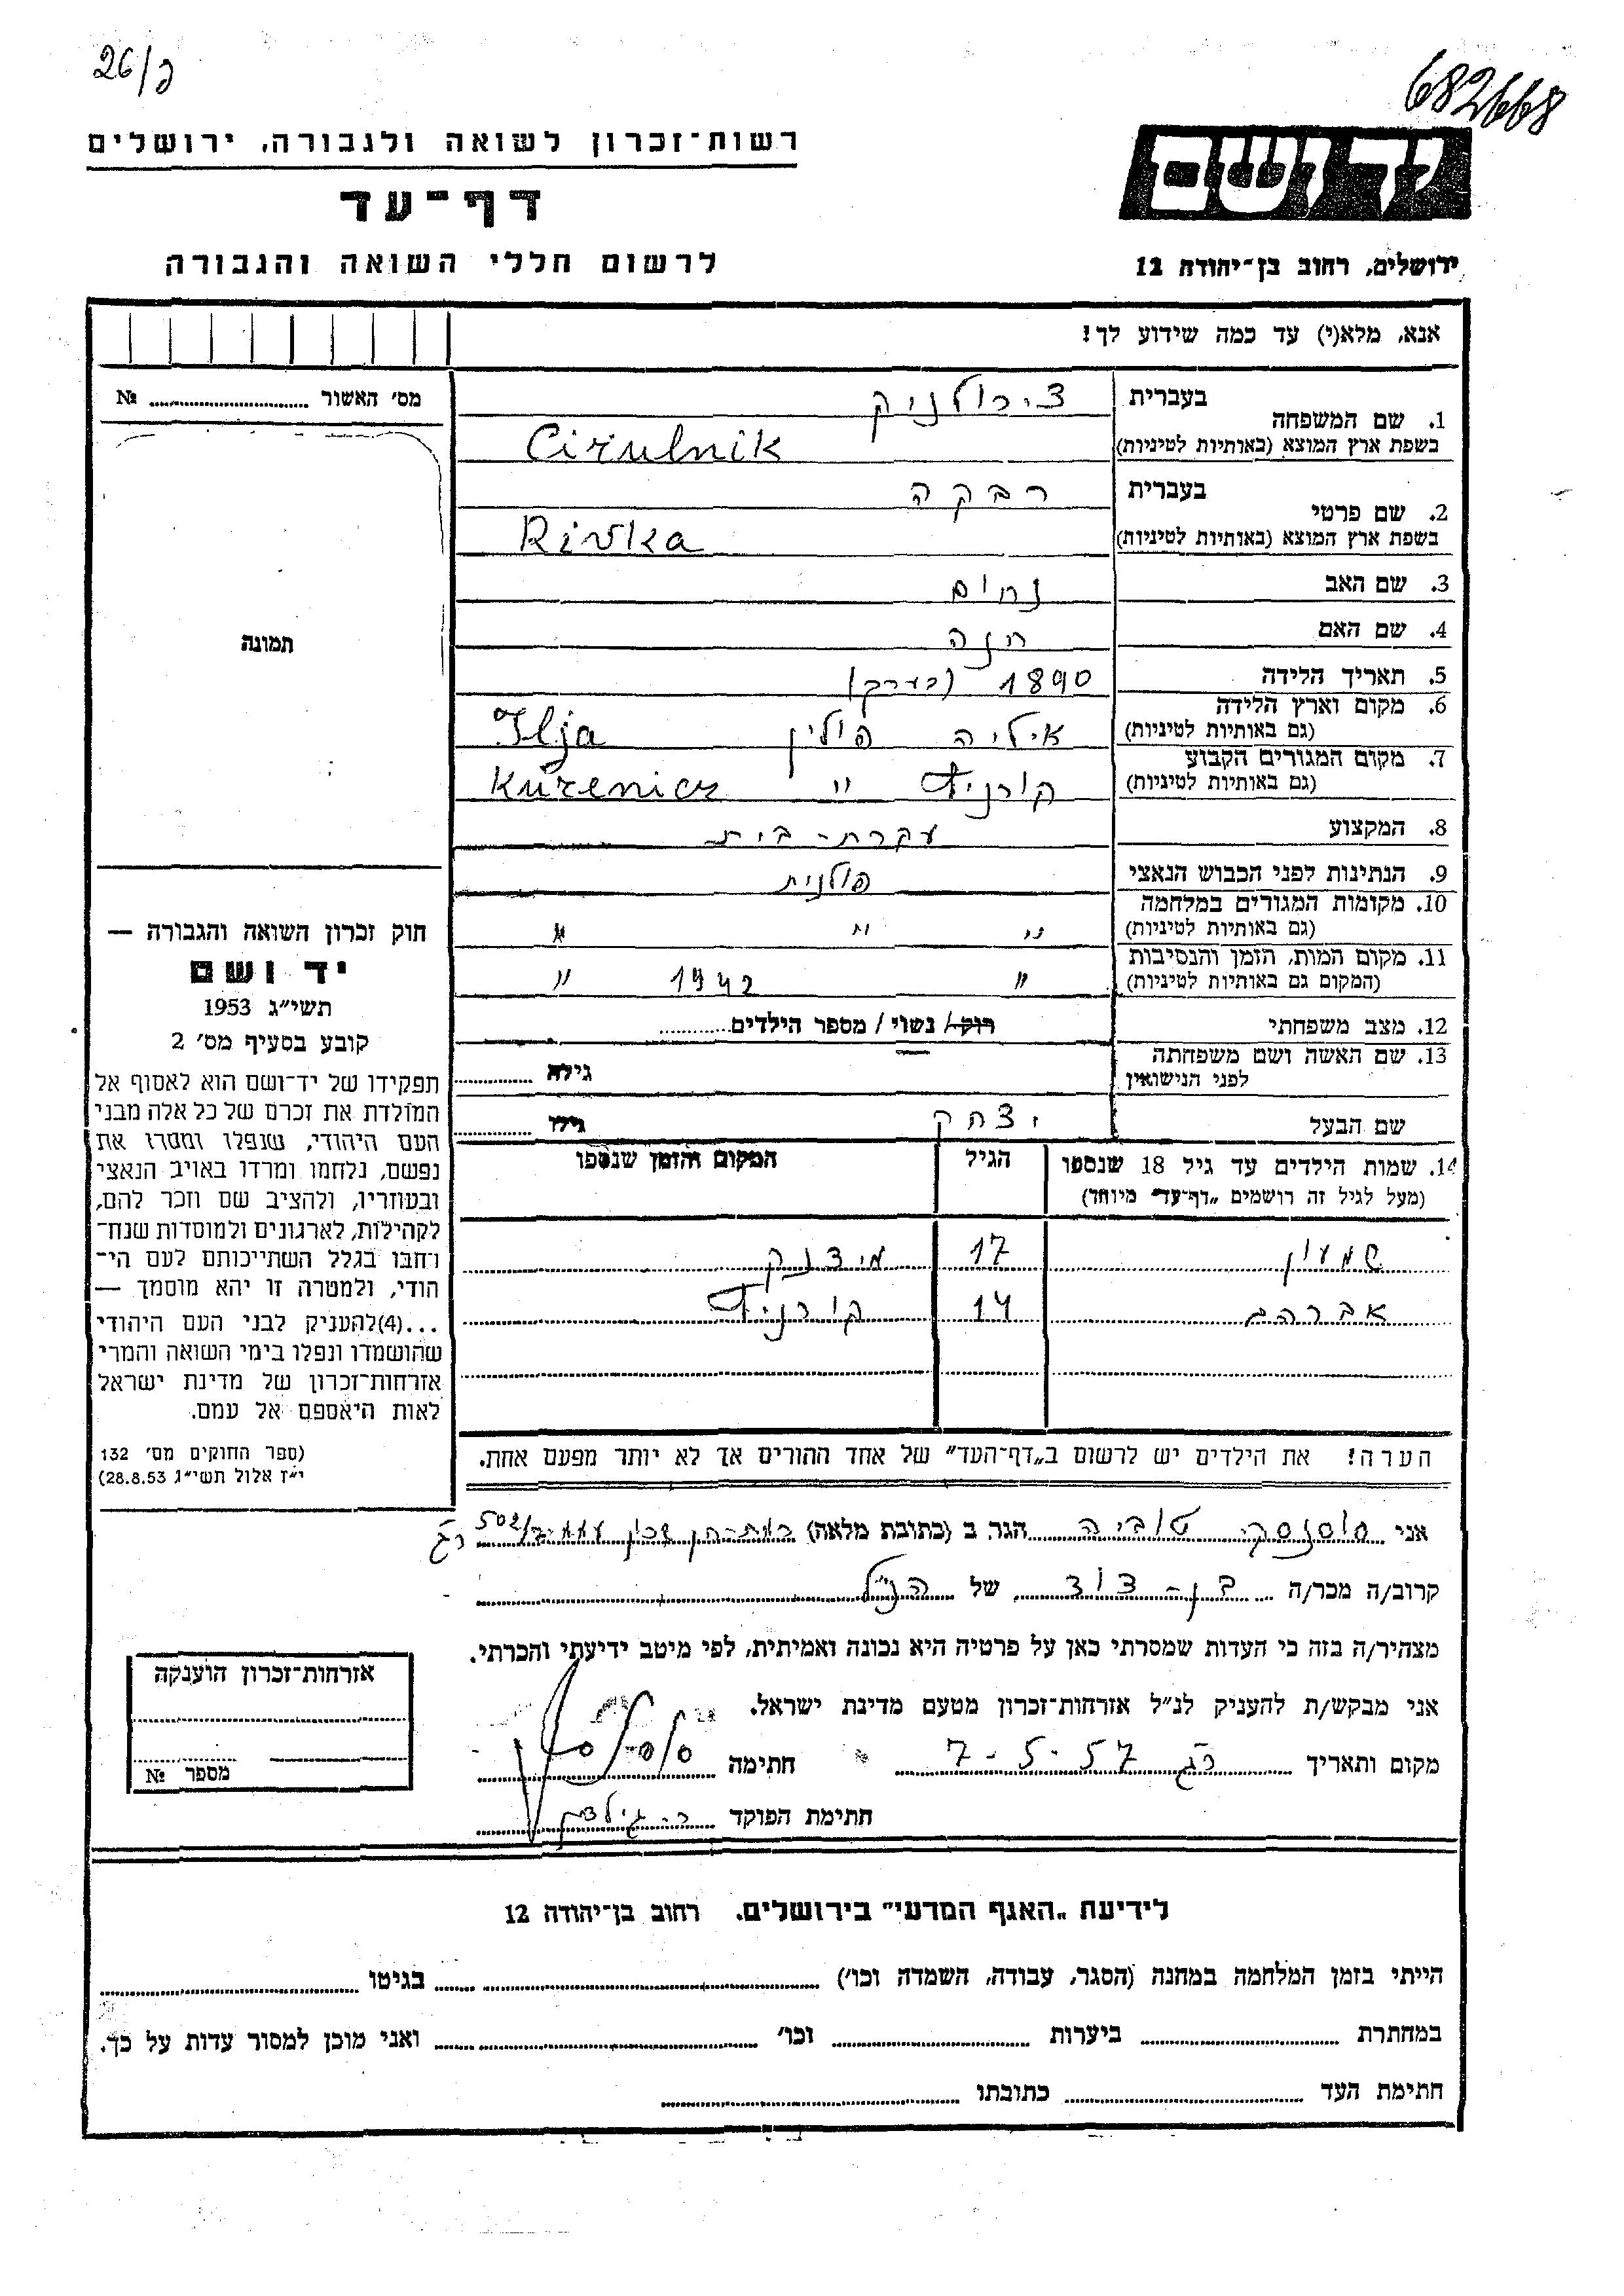 26/כ
682668
רשות־זכרון לשואה ולגבורה, ירושלים
דף־עד
לרשום חללי השואה והגבורה
יד ושם
ירושלים, רחוב בן־יהודה 12
אנא, מלא(י) עד כמה שידוע לך!
מס׳ האשור № 
תמונה
חוק זכרון השואה והגבורה —
יד ושם
תשי״ג 1953
קובע בסעיף מס׳ 2
תפקידו של יד־ושם הוא לאסוף אל
המולדת את זכרם של כל אלה מבני
העם היהודי, שנפלו ומסרו את
נפשם, נלחמו ומרדו באויב הנאצי
ובעוזריו, ולהציב שם וזכר להם,
לקהילות, לארגונים ולמוסדות שנח־
רחבו בגלל השתייכותם לעם הי־
הודי, ולמטרה זו יהא מוסמך —
...(4) להעניק לבני העם היהודי
שהושמדו ונפלו בימי השואה והמרי
אזרחות־זכרון של מדינת ישראל
לאות היאספם אל עמם.
(ספר החוקים מס׳ 132
י״ז אלול תשי״ג 28.8.53)
1. שם המשפחה בעברית צירולניק
בשפת ארץ המוצא (באותיות לטיניות) Cirulnik
2. שם פרטי בעברית רבקה
בשפת ארץ המוצא (באותיות לטיניות) Rivka
3. שם האב נחום
4. שם האם חנה
5. תאריך הלידה 1890 (בערך)
6. מקום וארץ הלידה (גם באותיות לטיניות) איליה פולין Ilja
7. מקום המגורים הקבוע (גם באותיות לטיניות) קורניץ " Kurenicz
8. המקצוע עקרת-בית
9. הנתינות לפני הכבוש הנאצי פולנית
10. מקומות המגורים במלחמה (גם באותיות לטיניות) " " "
11. מקום המות, הזמן והנסיבות (המקום גם באותיות לטיניות) " 1942 "
12. מצב משפחתי רוק/ נשוי/ מספר הילדים
13. שם האשה ושם משפחתה לפני הנישואין גילה
שם הבעל יצחק גילו
14. שמות הילדים עד גיל 18 שנספו הגיל המקום והזמן שנספו
(מעל לגיל זה רושמים „דף־עד״ מיוחד)
שמעון 17 מיצנק
אברהם 14 קורניץ
הערה! את הילדים יש לרשום ב„דף־העד״ של אחד ההורים אך לא יותר מפעם אחת.
אני טוביה הגר ב (כתובת מלאה) 502/ רג
קרוב/ה מכר/ה בן-דוד של הנ״ל
מצהיר/ה בזה כי העדות שמסרתי כאן על פרטיה היא נכונה ואמיתית, לפי מיטב ידיעתי והכרתי.
אני מבקש/ת להעניק לנ״ל אזרחות־זכרון מטעם מדינת ישראל.
מקום ותאריך רג 7-5-57 חתימה
חתימת הפוקד
אזרחות־זכרון הוענקה
מספר №
לידיעת „האגף המדעי״ בירושלים. רחוב בן־יהודה 12
הייתי בזמן המלחמה במחנה (הסגר, עבודה, השמדה וכו׳) בגיטו
במחתרת ביערות וכו׳ ואני מוכן למסור עדות על כך.
חתימת העד כתובתו